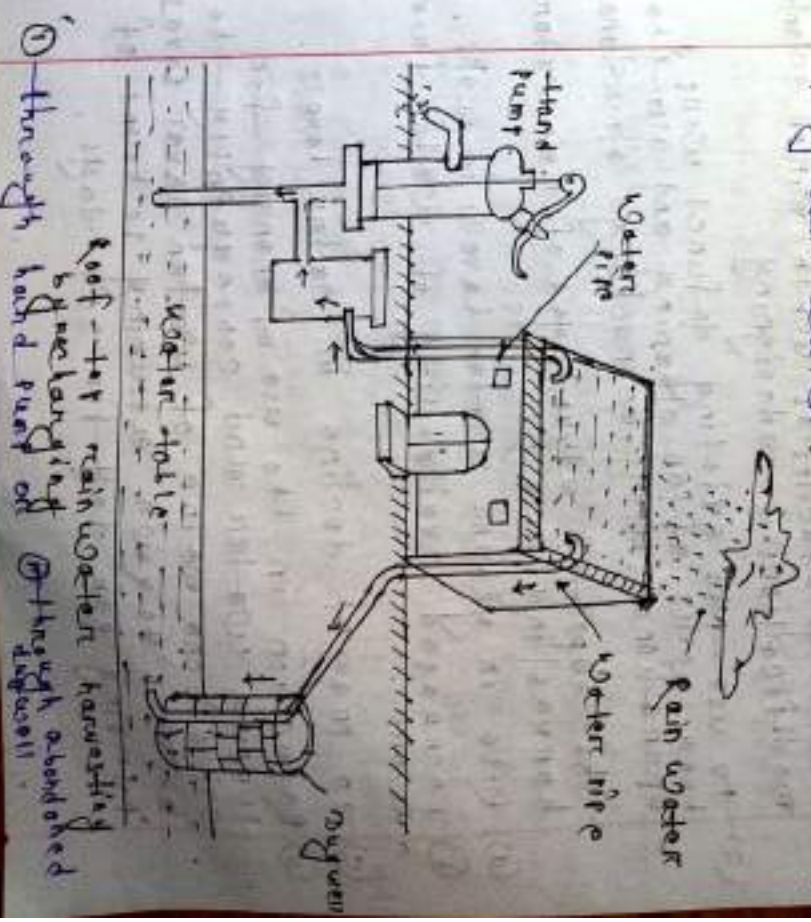 Rain water
Water pipe
Water
Pipe
Hand
Pump
Dugwell
Water table
Roof-top rainwater harvesting
by rechanging
① through hand pump or ② through abondoned
dugwell